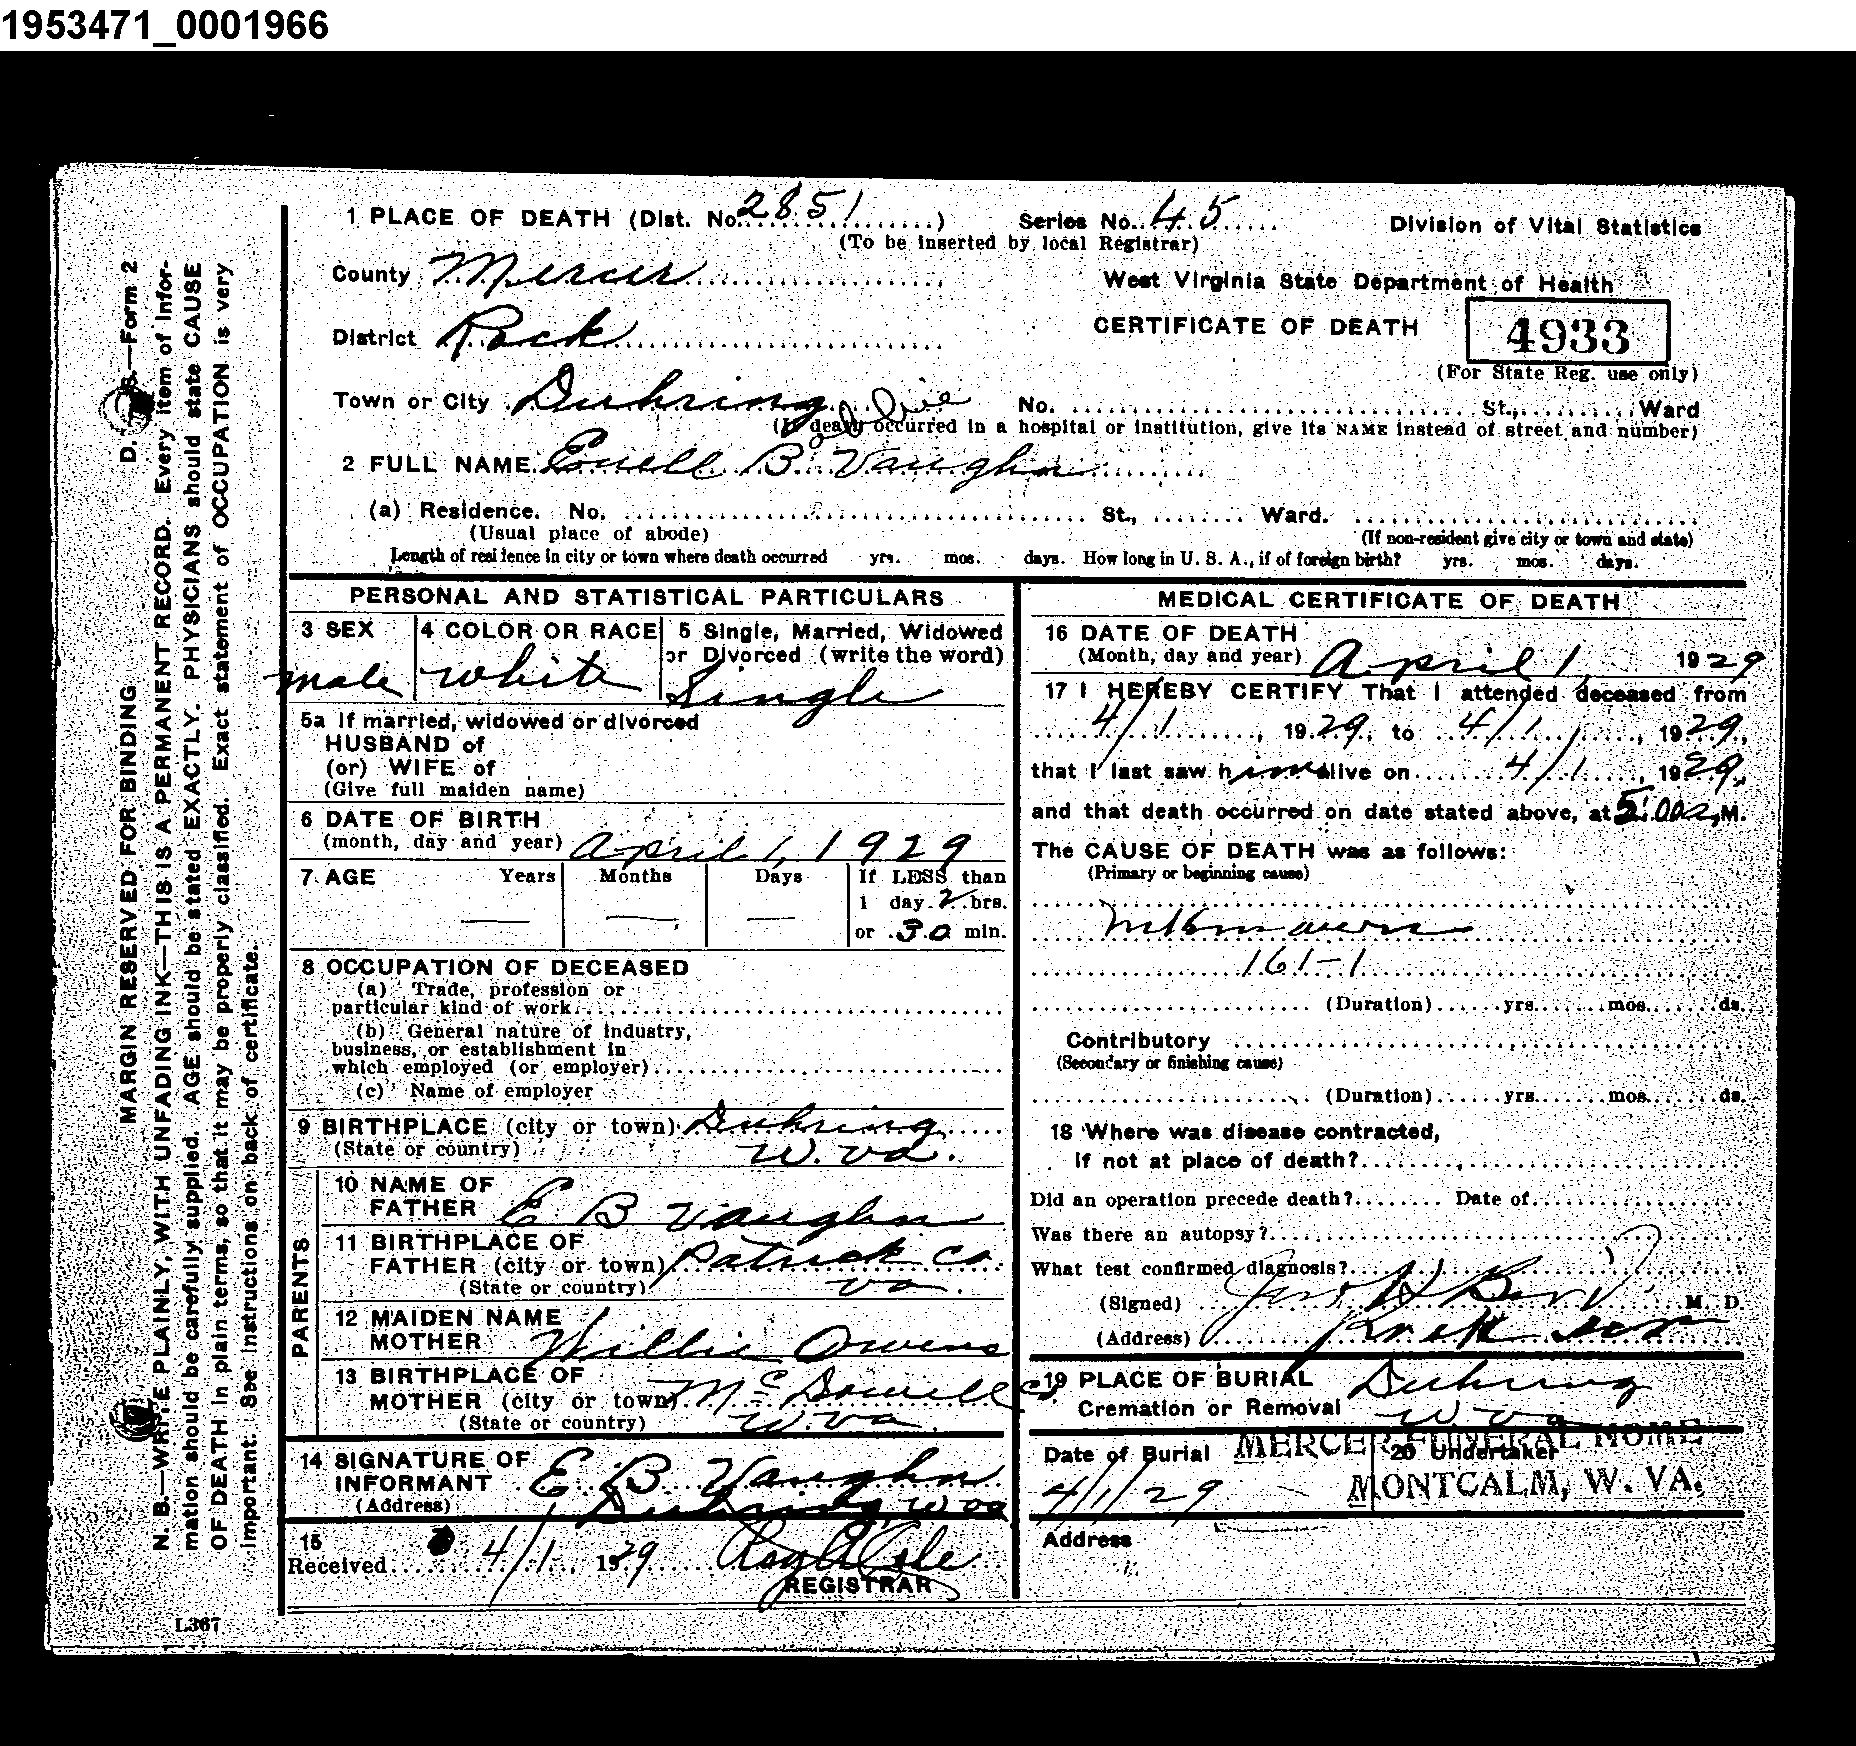 1953471_0001966
1 PLACE OF DEATH (Dist. No. 2851) Series No. 45 Division of Vital Statistics
(To be inserted by local Registrar)
County Mercer West Virginia State Department of Health
District Rock CERTIFICATE OF DEATH 4933
(For State Reg. use only)
Town or City Duhring No. St., Ward
alive
(If death occurred in a hospital or institution, give its NAME instead of street and number)
2 FULL NAME B. Vaughn
(a) Residence. No. St., Ward.
(Usual place of abode) (If non-resident give city or town and state)
Length of residence in city or town where death occurred yrs. mos. days. How long in U. S. A., if of foreign birth? yrs. mos. days.
PERSONAL AND STATISTICAL PARTICULARS
3 SEX 4 COLOR OR RACE 5 Single, Married, Widowed
or Divorced (write the word)
male white Single
5a If married, widowed or divorced
HUSBAND of
(or) WIFE of
(Give full maiden name)
6 DATE OF BIRTH
(month, day and year) April 1, 1929
7 AGE Years Months Days If LESS than
1 day 2 hrs.
or 30 min.
8 OCCUPATION OF DECEASED
(a) Trade, profession or
particular kind of work
(b) General nature of industry,
business, or establishment in
which employed (or employer)
(c) Name of employer
9 BIRTHPLACE (city or town) Duhring
(State or country) W. Va.
PARENTS
10 NAME OF
FATHER E B Vaughn
11 BIRTHPLACE OF
FATHER (city or town) Patrick Co
(State or country) Va.
12 MAIDEN NAME
MOTHER Willie Owens
13 BIRTHPLACE OF
MOTHER (city or town) McDowell Co
(State or country) W. Va.
14 SIGNATURE OF
INFORMANT E B Vaughn
(Address) Duhring, W Va
15
Received 4/1 1929 Cole
REGISTRAR
MEDICAL CERTIFICATE OF DEATH
16 DATE OF DEATH
(Month, day and year) April 1, 1929
17 I HEREBY CERTIFY That I attended deceased from
4/1, 1929, to 4/1, 1929,
that I last saw him alive on 4/1, 1929,
and that death occurred on date stated above, at 5:00a, M.
The CAUSE OF DEATH was as follows:
(Primary or beginning cause)
161-1
(Duration) yrs. mos. ds.
Contributory
(Secondary or finishing cause)
(Duration) yrs. mos. ds.
18 Where was disease contracted,
if not at place of death?
Did an operation precede death? Date of
Was there an autopsy?
What test confirmed diagnosis?
(Signed) M. D.
(Address)
19 PLACE OF BURIAL Duhring
Cremation or Removal W Va
Date of Burial 20 Undertaker
MERCER FUNERAL HOME
4/1/29 MONTCALM, W. VA.
Address
D. S.—Form 2
MARGIN RESERVED FOR BINDING
N. B.—WRITE PLAINLY, WITH UNFADING INK—THIS IS A PERMANENT RECORD. Every item of infor-
mation should be carefully supplied. AGE should be stated EXACTLY. PHYSICIANS should state CAUSE
OF DEATH in plain terms, so that it may be properly classified. Exact statement of OCCUPATION is very
important. See instructions on back of certificate.
L367